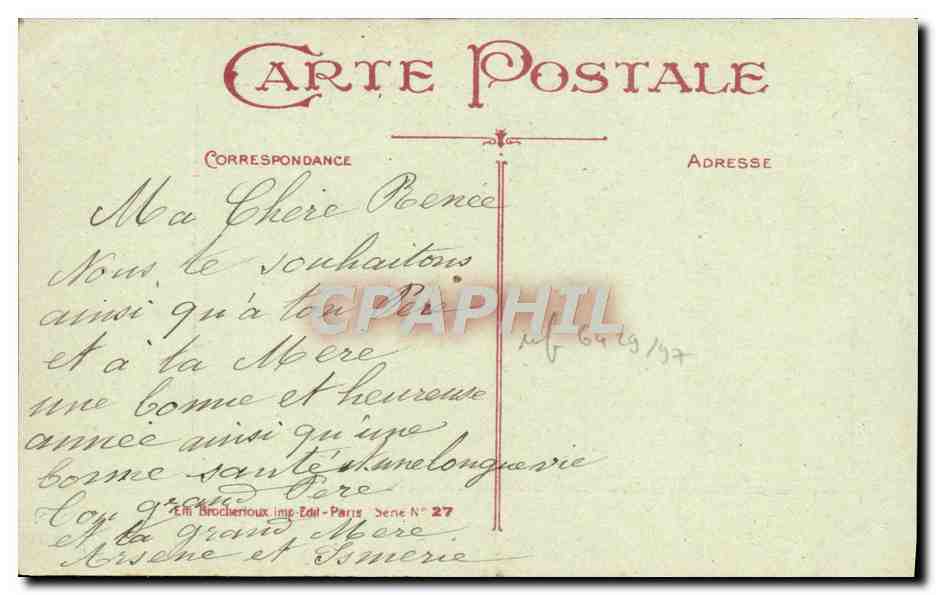 CARTE POSTALE
CORRESPONDANCE
ADRESSE
Ma Chère Renée
Nous te souhaitons
ainsi qu'à ton Père
et à ta Mère
une bonne et heureuse
année ainsi qu'une
bonne santé et une longue vie
ton grand Père
et ta grand Mère
Arsene et Ismerie
Em Brocherioux imp-Edit - Paris Serie N° 27
CPAPHIL
6429/97